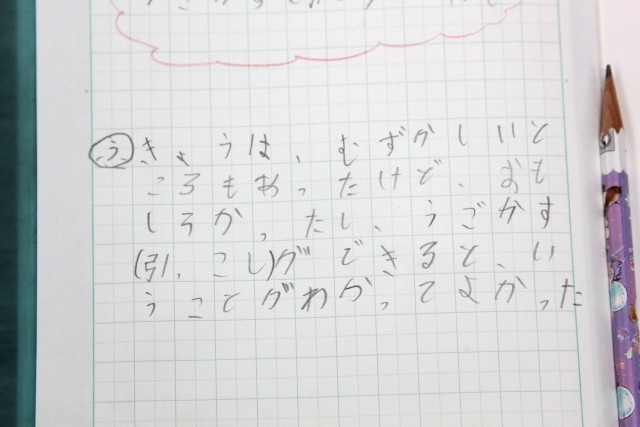 う きょうは、むずかしいと
ころもあったけど、おも
しろかったし、うごかす
(引っこし)ができると、い
うことがわかってよかった